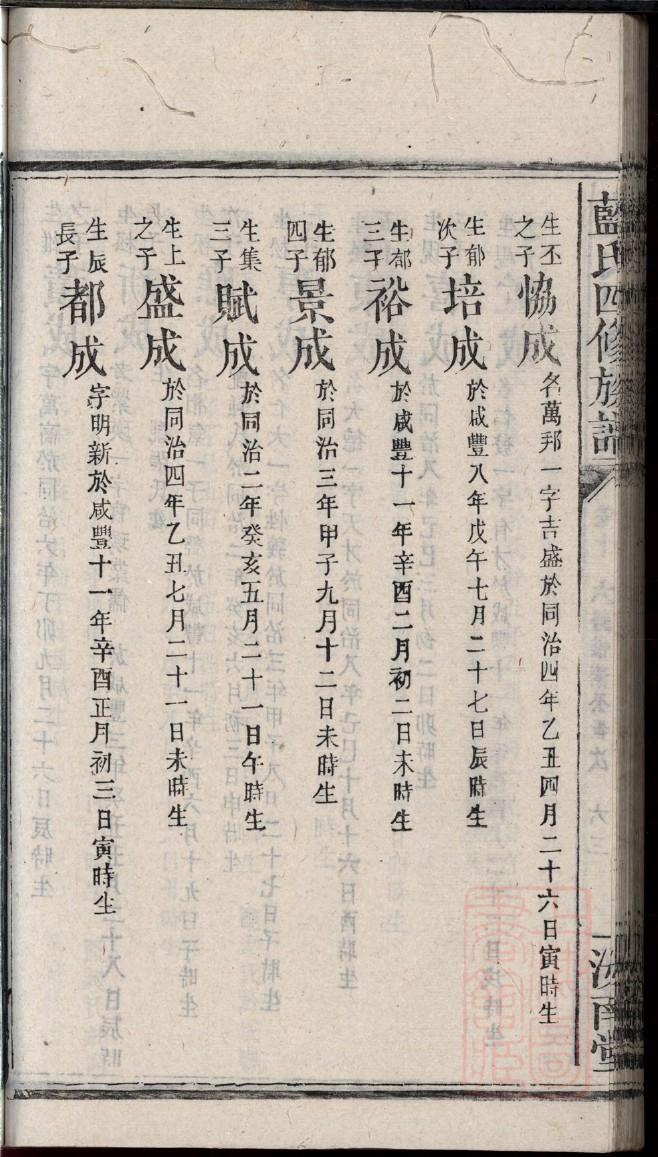 藍氏四修族譜
汝南堂
生丕之子 協成 名萬邦一字吉盛於同治四年乙丑四月二十六日寅時生
生郁次子 培成 於咸豐八年戊午七月二十七日辰時生
生郁三子 裕成 於咸豐十一年辛酉二月初二日未時生
生郁四子 景成 於同治三年甲子九月十二日未時生
生集三子 賦成 於同治二年癸亥五月二十一日午時生
生上之子 盛成 於同治四年乙丑七月二十一日未時生
生辰長子 都成 字明新於咸豐十一年辛酉正月初三日寅時生